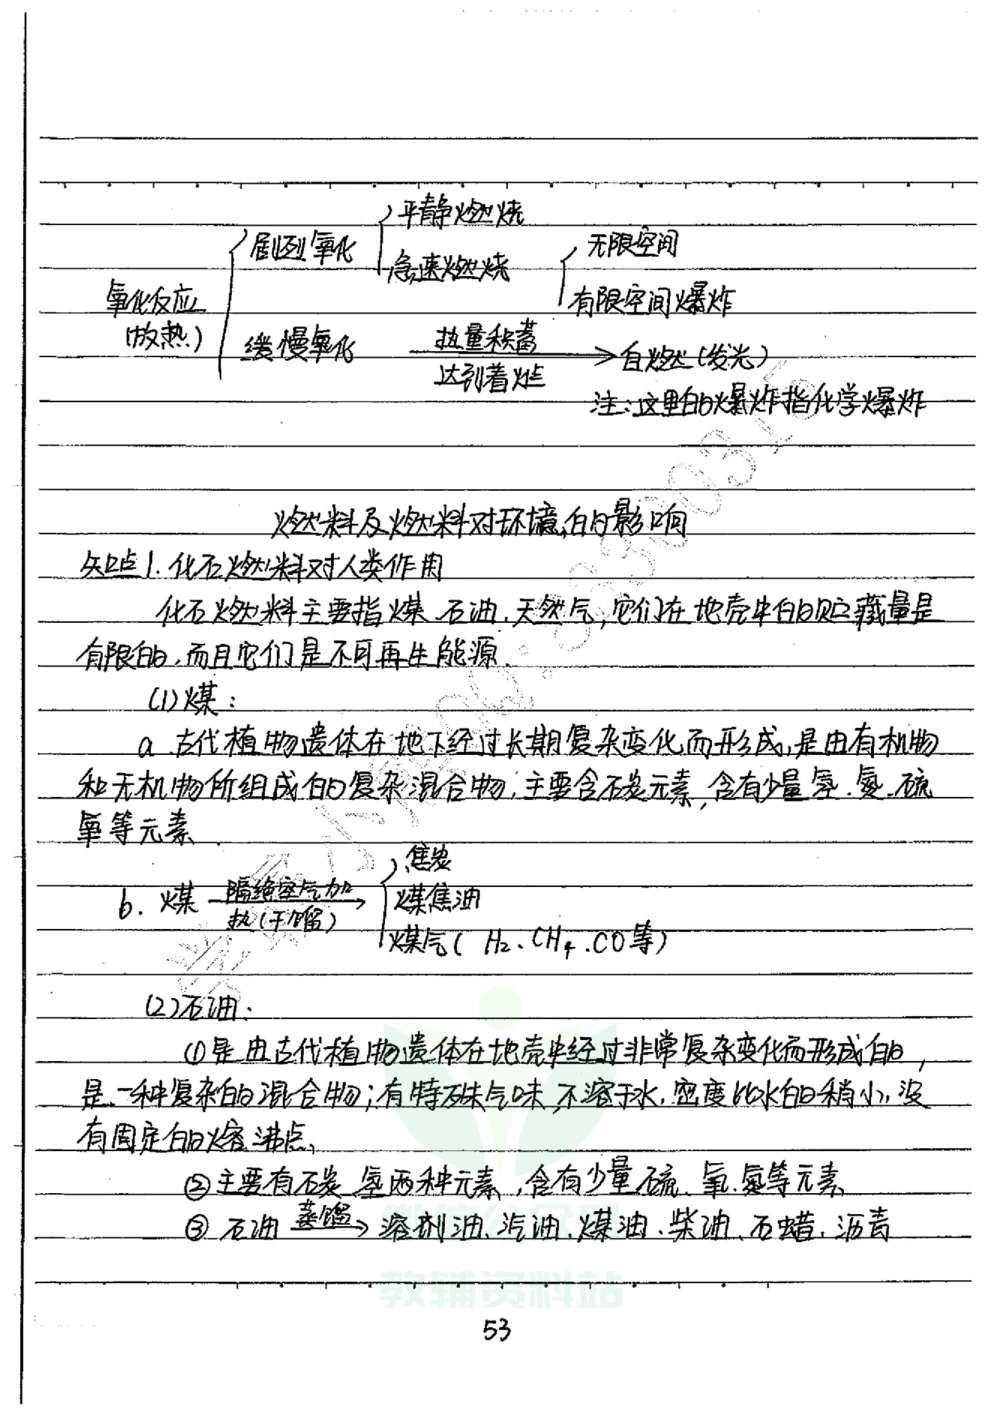 平静燃烧
剧烈氧化
急速燃烧
无限空间
氧化反应
(放热)
有限空间爆炸
缓慢氧化
热量积蓄
达到着火点
自燃(发光)
注:这里的爆炸指化学爆炸
燃料及燃料对环境的影响
知识点1.化石燃料对人类作用
化石燃料主要指煤、石油、天然气,它们在地壳中的贮藏量是
有限的,而且它们是不可再生能源.
(1)煤:
a 古代植物遗体在地下经过长期复杂变化而形成,是由有机物
和无机物所组成的复杂混合物,主要含碳元素,含有少量氢.氮.硫
氧等元素.
焦炭
b. 煤 隔绝空气加 煤焦油
热(干馏)
煤气( H₂、CH₄.CO等)
(2)石油:
①是由古代植物遗体在地壳中经过非常复杂变化而形成的,
是一种复杂的混合物;有特殊气味,不溶于水,密度比水的稍小,没
有固定的熔沸点,
②主要有碳、氢两种元素,含有少量硫、氧.氮等元素
③ 石油 蒸馏 溶剂油、汽油、煤油、柴油、石蜡、沥青
教辅资料站
53